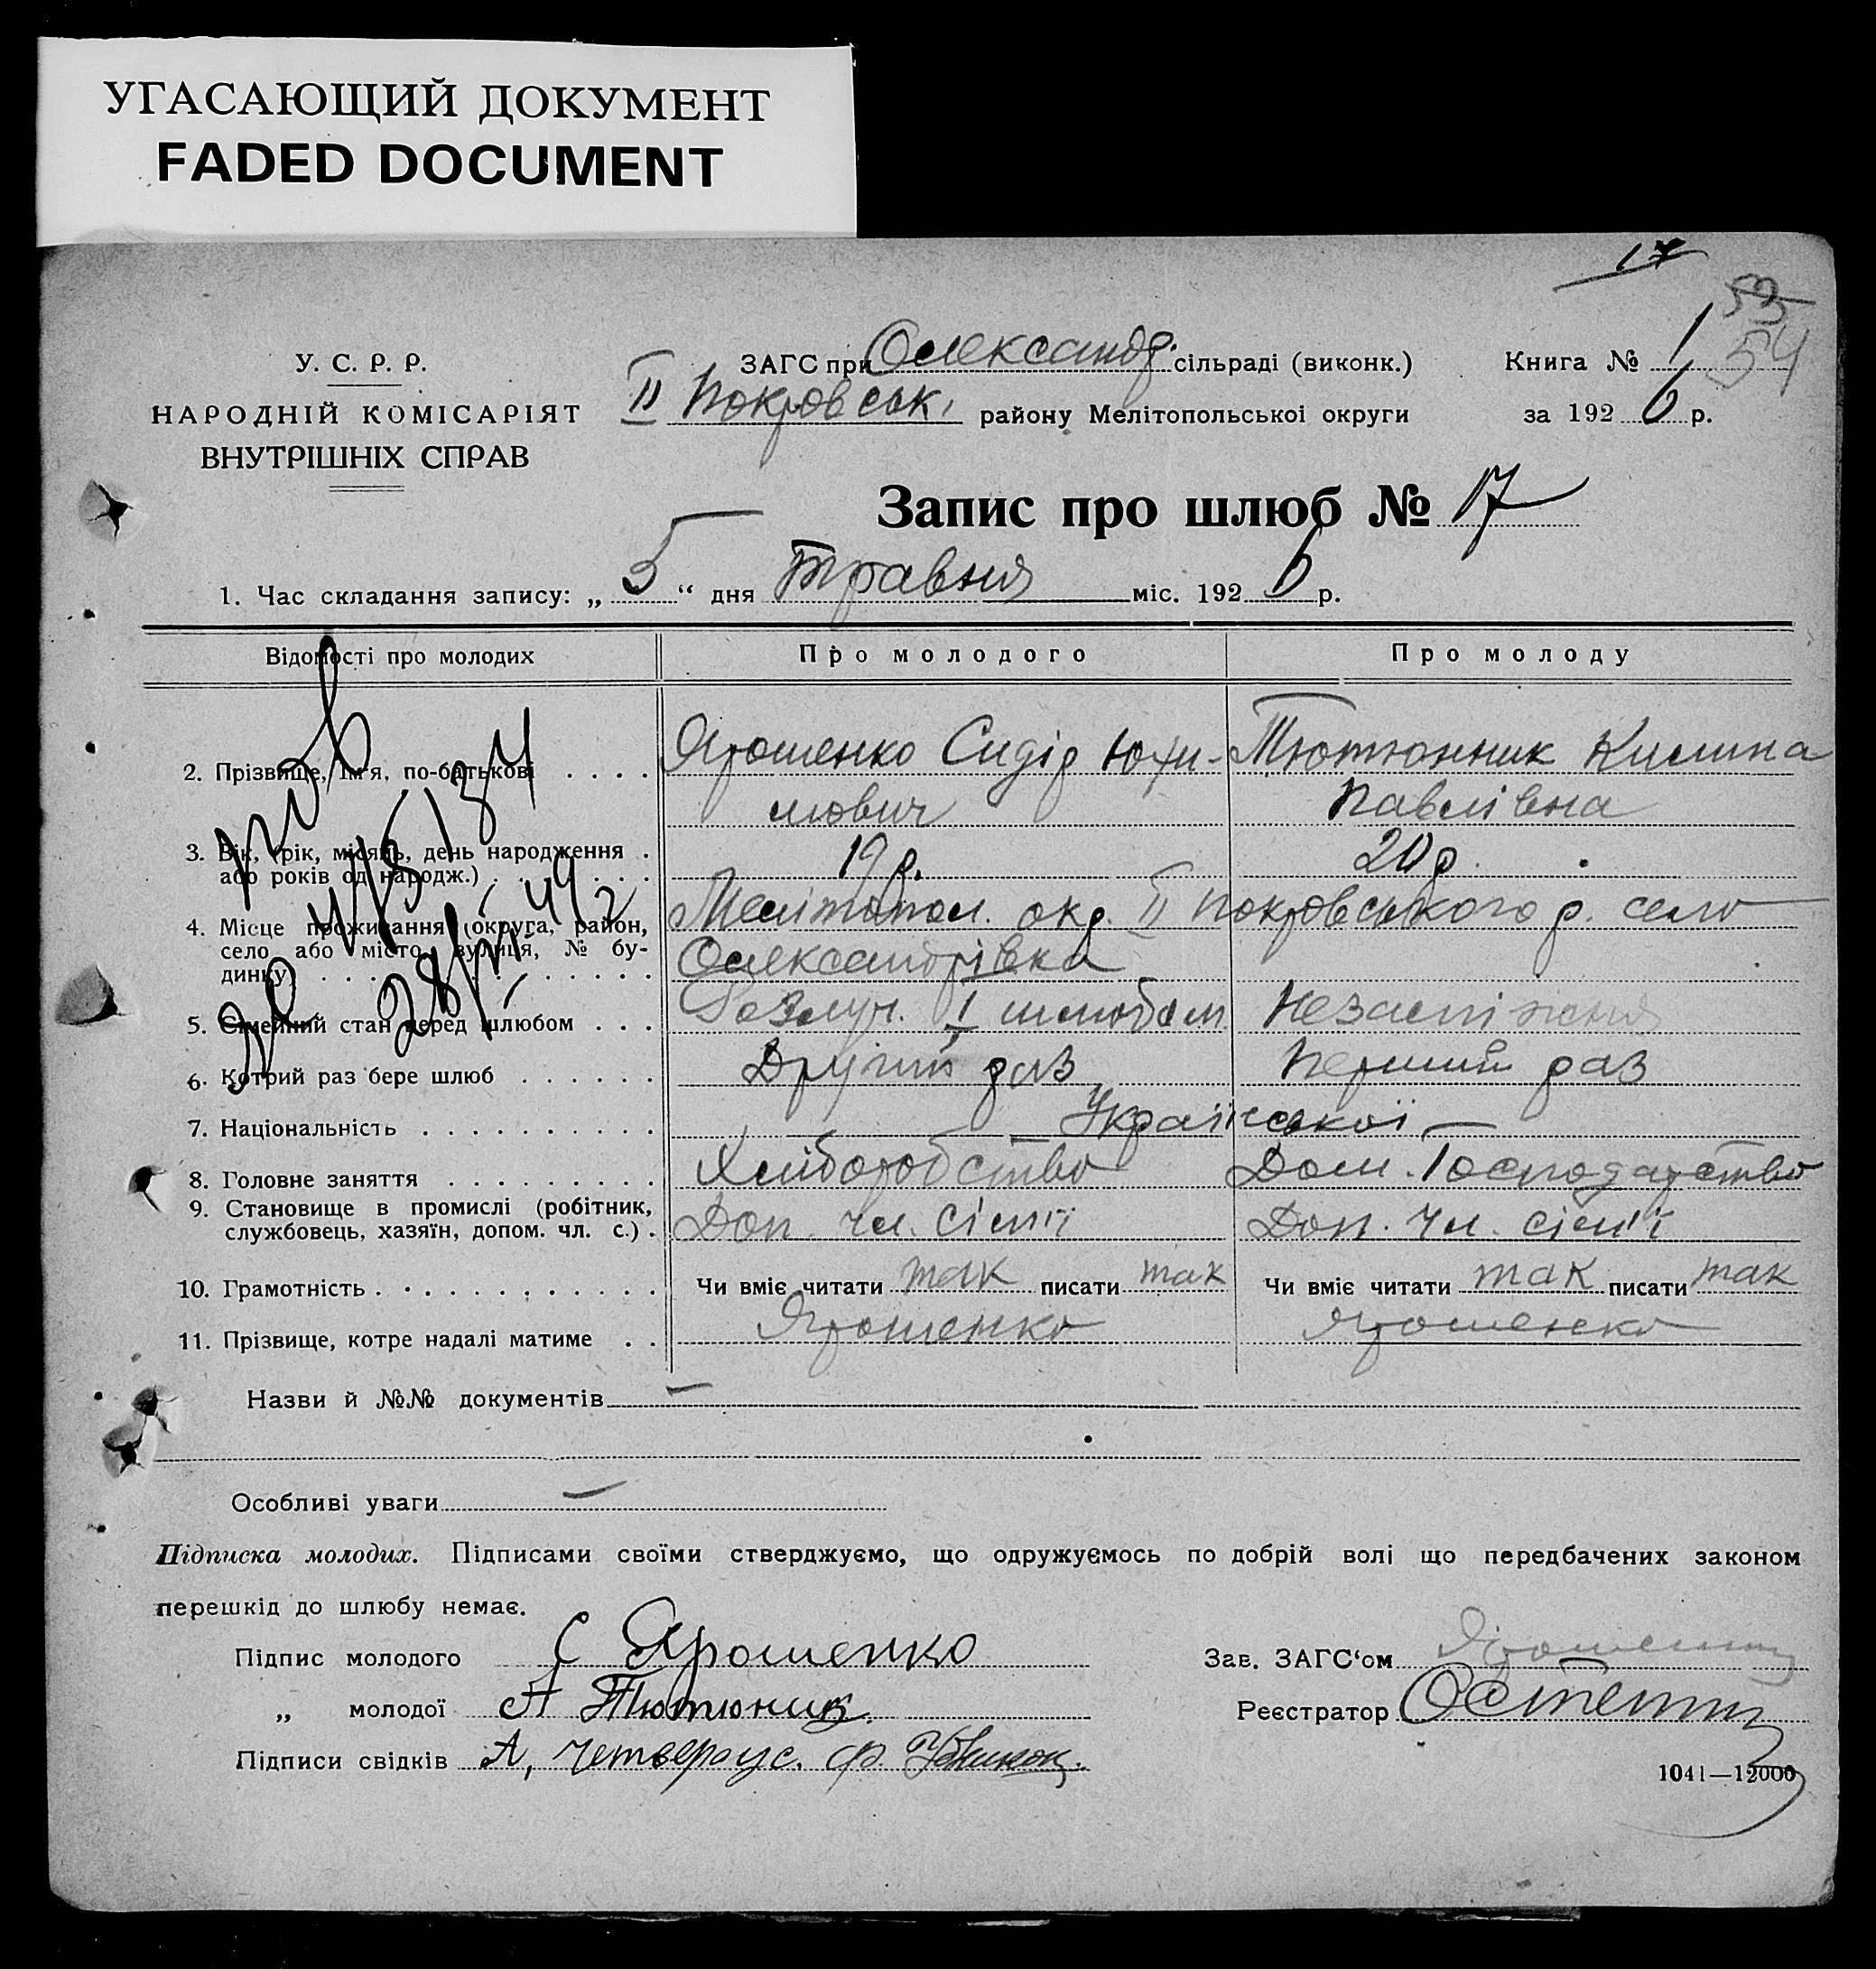 УГАСАЮЩИЙ ДОКУМЕНТ
FADED DOCUMENT
17
53
54
У. С. Р. Р.
НАРОДНІЙ КОМІСАРІЯТ
ВНУТРІШНІХ СПРАВ
ЗАГС при Олександр. сільраді (виконк.)
II Покровськ. району Мелітопольскоі округи
Книга № 1
за 1926 р.
Запис про шлюб № 17
1. Час складання запису: „ 5 “ дня травня міс. 1926 р.
Відомості про молодих
Про молодого
Про молоду
2. Прізвище, ім'я, по-батькові . . . . Ярошенко Сидір Юхи- Тютюнник Килина
мович Павлівна
3. Вік, (рік, місяць, день народження . 19 р. 20 р.
або років од народж.) . . . . . .
4. Місце проживання (округа, район, Мелітопол. окр. II Покровського р. село
село або місто, вулиця, № бу- Олександрівка
динку) . . . . . . . . . . . . . . .
5. Сімейний стан перед шлюбом . . . Розлуч. I шлюбом Незаміжня
6. Котрий раз бере шлюб . . . . . . Другий раз Перший раз
7. Національність . . . . . . . . . . Української
8. Головне заняття . . . . . . . . . Хліборобство Дом. Господарство
9. Становище в промислі (робітник,
службовець, хазяїн, допом. чл. с.) . Доп. чл. сім'ї Доп. чл. сім'ї
10. Грамотність . . . . . . . . . . . . Чи вміє читати так писати так Чи вміє читати так писати так
11. Прізвище, котре надалі матиме . . Ярошенко Ярошенко
Назви й №№ документів —
Особливі уваги —
Підписка молодих. Підписами своїми стверджуємо, що одружуємось по добрій волі що передбачених законом
перешкід до шлюбу немає.
Підпис молодого С Ярошенко
Зав. ЗАГС‘ом
„ молодої А Тютюник.
Реєстратор
Підписи свідків А, Четвероус. Ф.
1041—12000